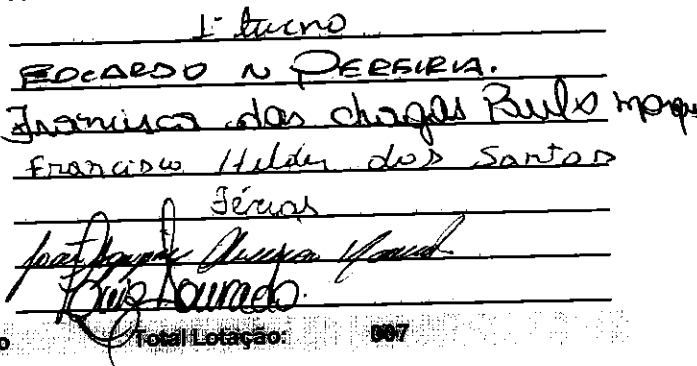 1º turno
EDCARDO N PEREIRIA.
Francisca das chagas Paulo marqu
Francisco Helder dos Santos
Férias
Luis Lourado.
o Total Lotação: 007